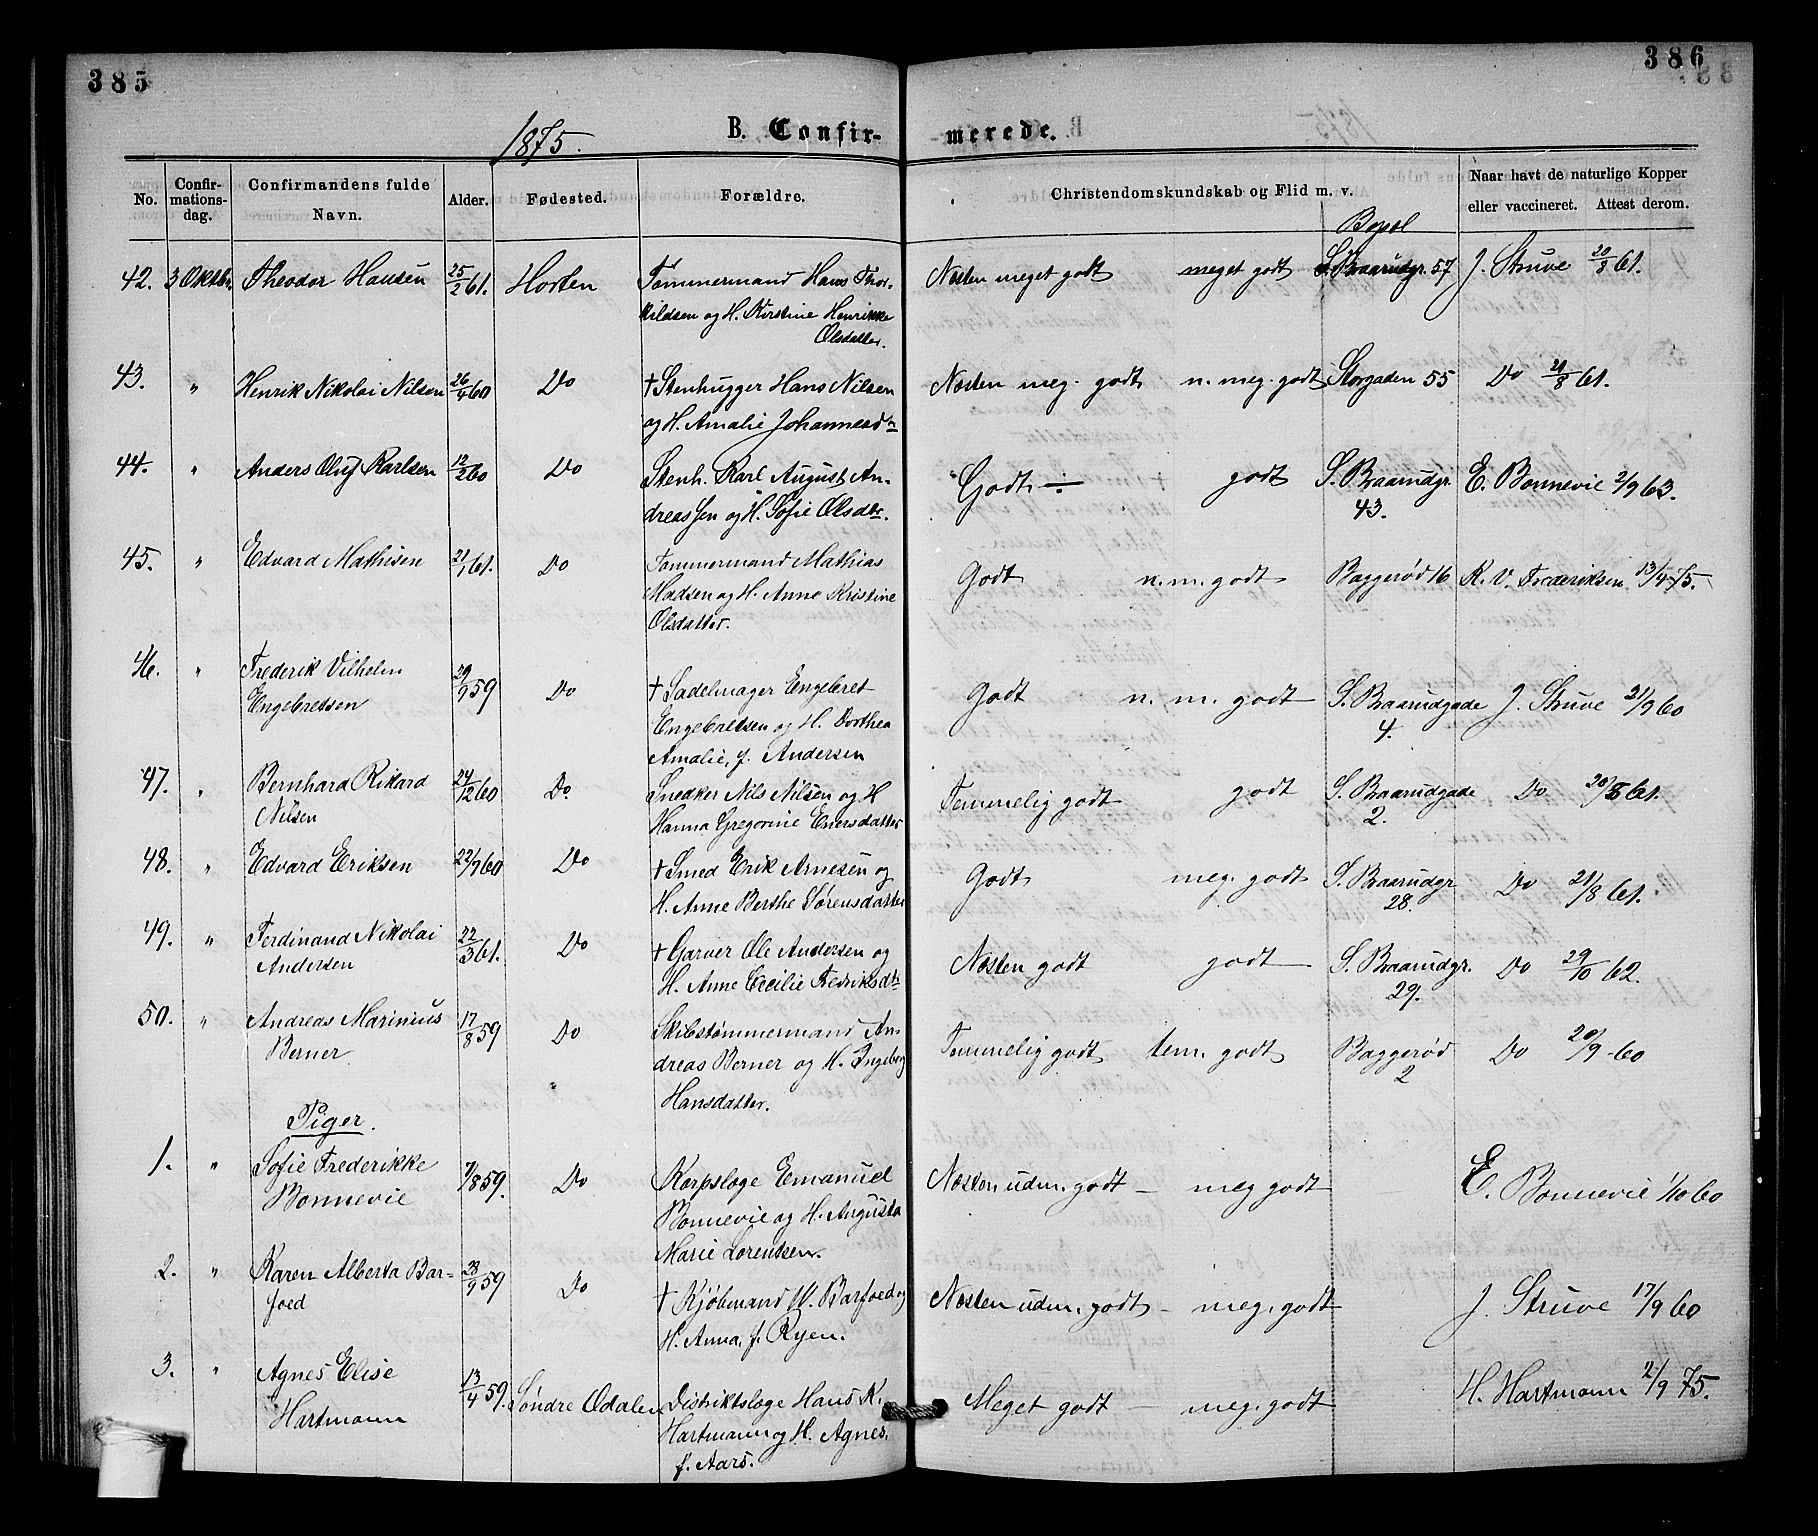 385
386
1875.
B. Confir-
merede.
No.
Confir-
mations-
dag.
Confirmandens fulde
Navn.
Alder.
Fødested.
Forældre.
Christendomskundskab og Flid m. v.
Bopæl
Naar havt de naturlige Kopper
eller vaccineret. Attest derom.
42. 3 Oktbr. Theodor Hansen 25/2 61. Horten Tømmermand Hans Thor- Næsten meget godt meget godt S. Braarudgr. 57 J. Struve 20/8 61.
kildsen og H. Kirstine Henrikke
Olsdatter.
43. " Henrik Nikolai Nilsen 26/4 60 Do † Stenhugger Hans Nilsen Næsten meg. godt n. meg. godt Storgaden 55 Do 21/8 61.
og H. Amalie Johannesdtr
44. " Anders Oluf Karlsen 12/2 60 Do Stenh. Karl August An- Godt ÷ godt S. Braarudgr. E. Bonnevie 2/9 63.
dreassen og H. Sofie Olsdtr. 43.
45. " Edvard Mathisen 21/1 61. Do Tømmermand Mathias Godt n. m. godt Baggerød 16 K. V. Frederiksen 13/4 75.
Madsen og H. Anne Kristine
Olsdatter.
46. " Frederik Vilhelm 29/9 59 Do † Sadelmager Engebret Godt n. m. godt S. Braarudgade J. Struve 21/9 60
Engebretsen Engebretsen og H. Dorthea 4.
Amalie, f. Andersen
47. " Bernhard Rikard 24/12 60 Do. Snedker Nils Nilsen og H Temmelig godt godt S. Braarudgade Do 20/8 61.
Nilsen Hanna Gregorine Enersdatter 2.
48. " Edvard Eriksen 22/9 60 Do † Smed Erik Arnesen og Godt meg. godt S. Braarudgr Do 21/8 61.
H. Anne Berthe Sørensdatter 28.
49. " Ferdinand Nikolai 22/3 61. Do † Garver Ole Andersen og Næsten godt godt S. Braarudgr. Do 29/10 62.
Andersen H. Anne Cecilie Fredriksdtr 29.
50. " Andreas Marinius 17/8 59 Do Skibstømmermand An- Temmelig godt tem. godt Baggerød Do 20/9 60
Berner dreas Berner og H. Ingeborg 2
Hansdatter.
Piger.
1. " Sofie Frederikke 7/8 59. Do Korpslæge Emanuel Næsten udm. godt – meg godt E. Bonnevie 1/10 60
Bonnevie Bonnevie og H. Augusta
Marie Lorentsen.
2. " Karen Alberta Bar- 23/9 59 Do † Kjøbmand W. Barfoed og Næsten udm. godt – meg. godt J. Struve 17/9 60
foed H. Anna, f. Ryen.
3. " Agnes Elise 13/4 59. Søndre Odalen Distriktslæge Hans K. Meget godt – meg. godt H. Hartmann 2/9 75.
Hartmann Hartmann og H. Agnes,
f. Aars.